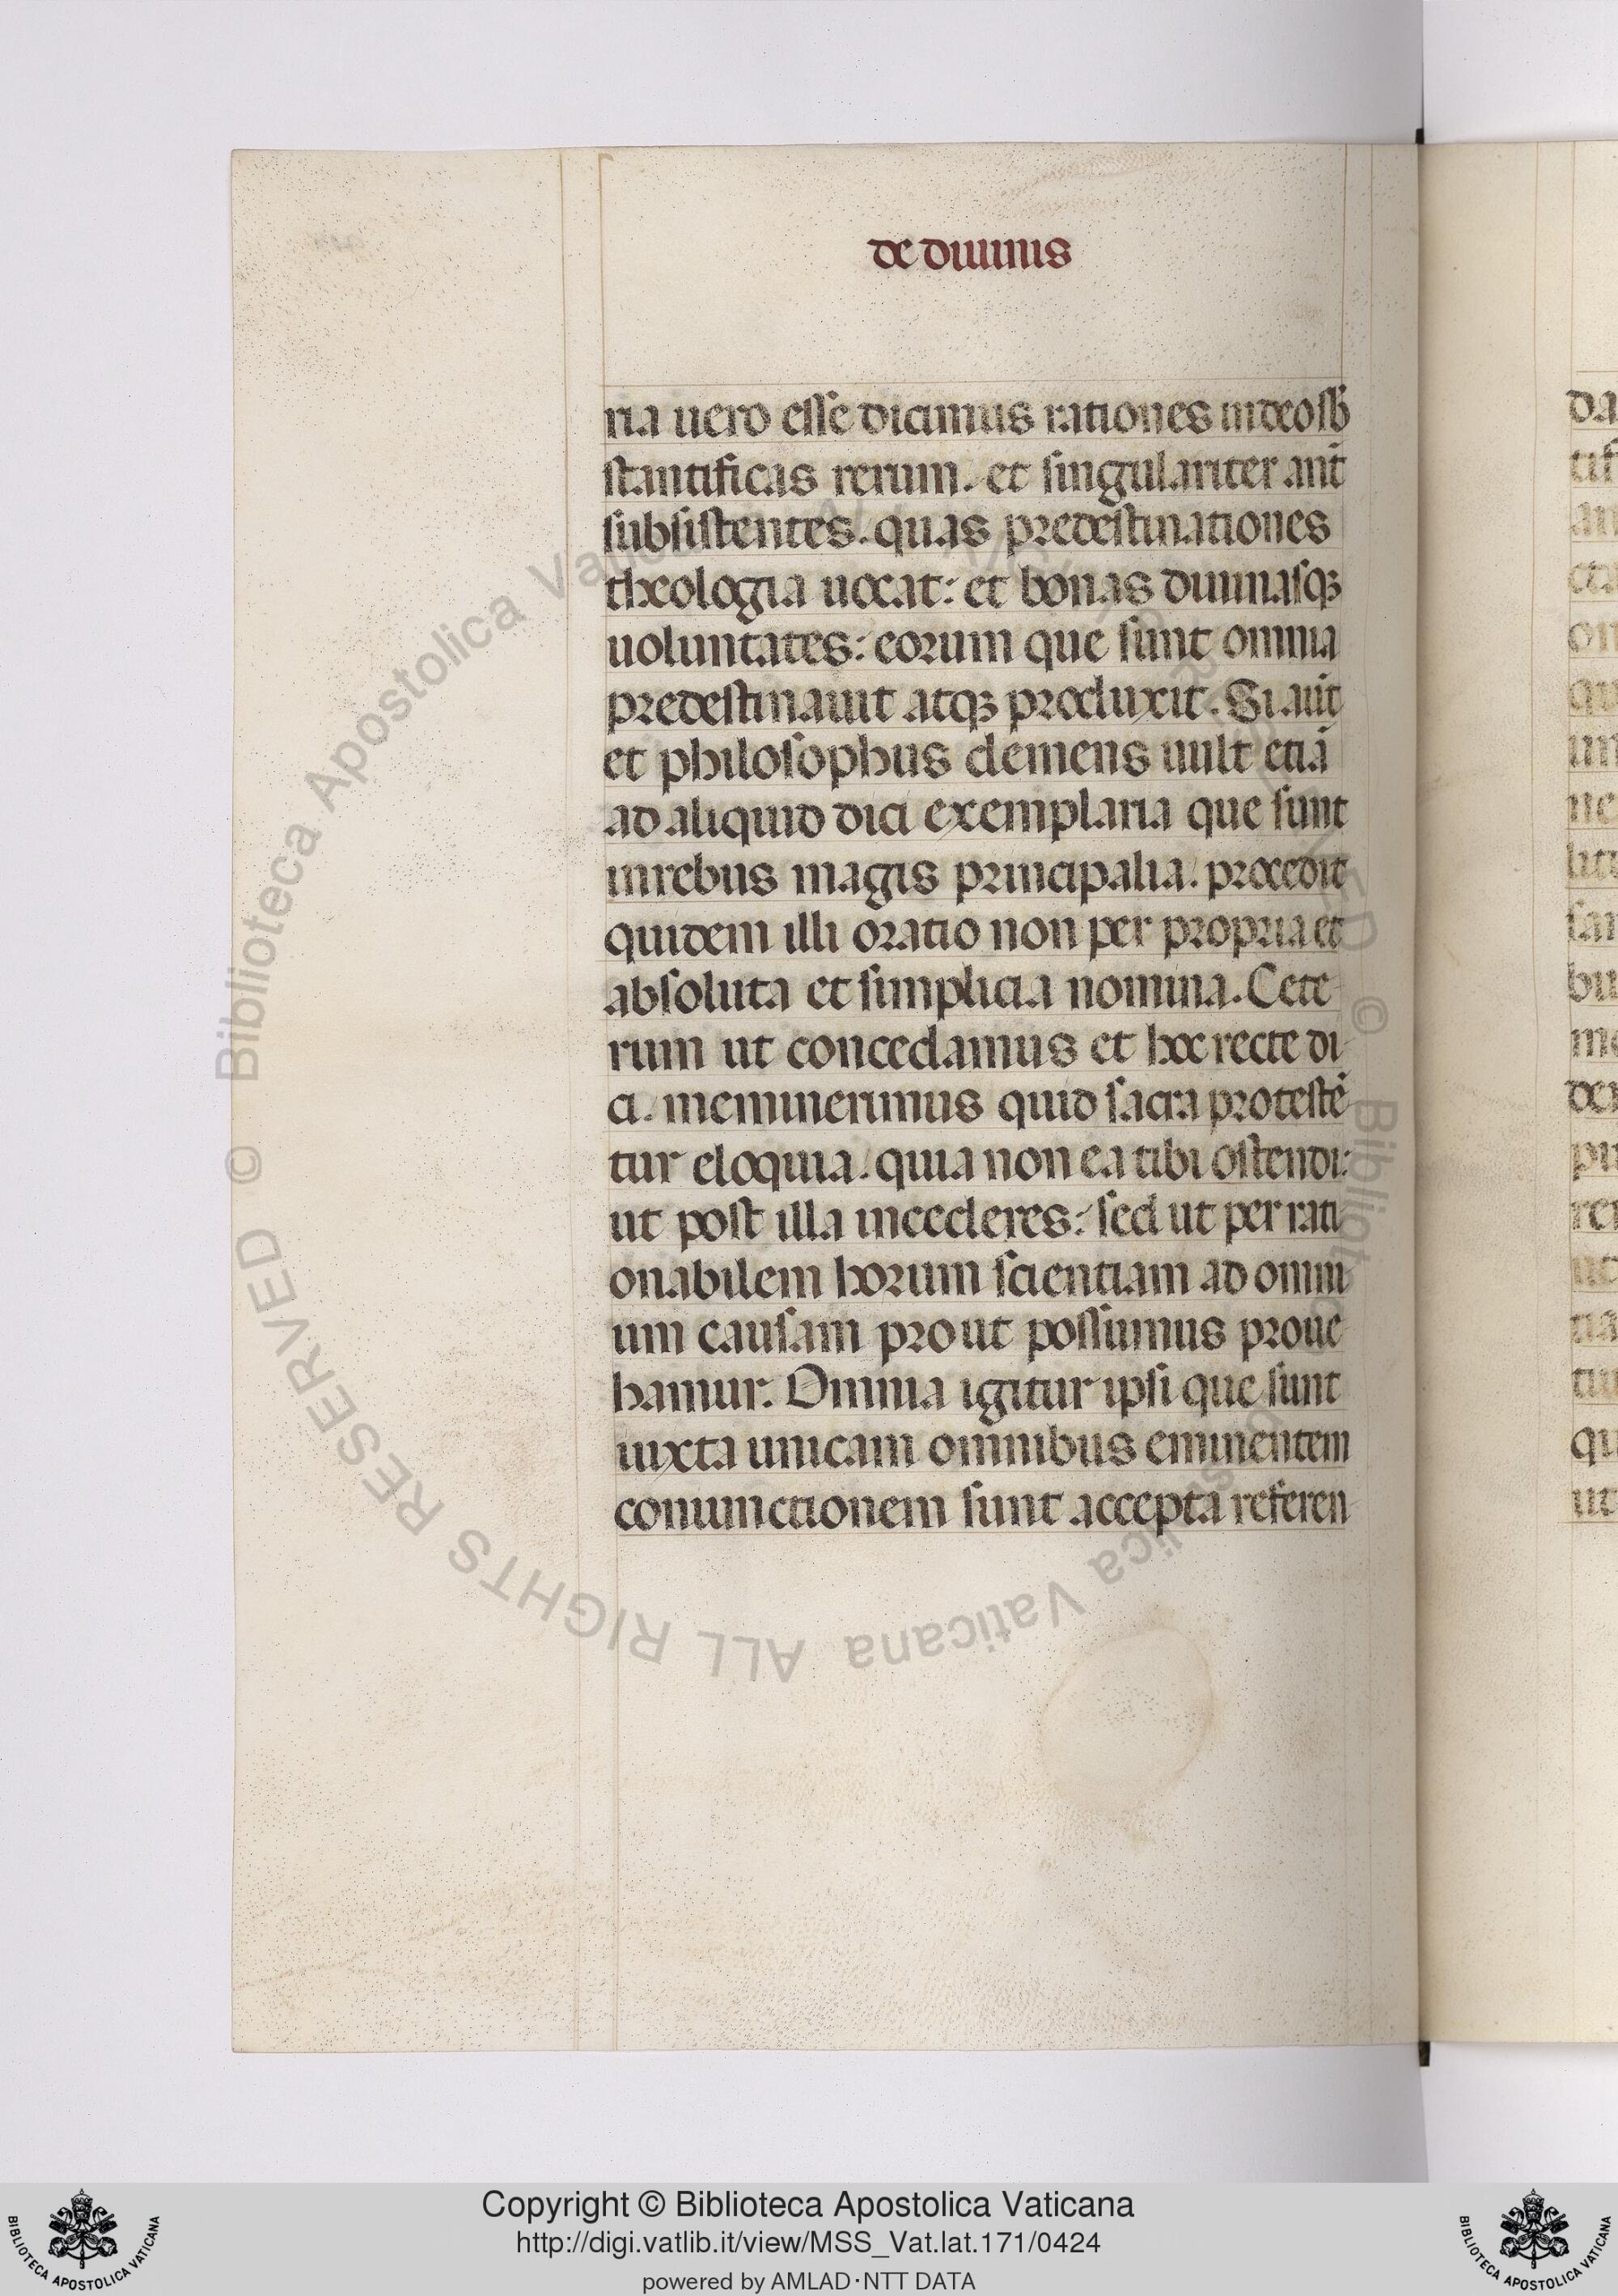 de diuinis
ria uero esse dicimus rationes in deo sb̄
stantificas rerum. et singulariter an̄t
subsistentes. quas predestinationes
theologia uocat: et bonas diuinasqꝫ
uoluntates: eorum que sunt omnia
predestinauit atqꝫ produxit. Si aūt
et philosophus clemens uult etiā
ad aliquid dici exemplaria que sunt
in rebus magis principalia. procedit
quidem illi oratio non per propria et
absoluta et simplicia nomina. Cete
rum ut concedamus et hoc recte di
ci. meminerimus quid sacra protestē
tur eloquia. quia non ea tibi ostendi:
ut post illa incederes: sed ut per rati
onabilem horum scientiam ad omni
um causam prout possumus proue
hamur. Omnia igitur ipsi que sunt
iuxta unicam omnibus eminentem
coniunctionem sunt accepta referen
da
Copyright © Biblioteca Apostolica Vaticana
http://digi.vatlib.it/view/MSS_Vat.lat.171/0424
powered by AMLAD·NTT DATA
BIBLIOTECA APOSTOLICA VATICANA
BIBLIOTECA APOSTOLICA VATICANA
© Biblioteca Apostolica Vaticana
ALL RIGHTS RESERVED